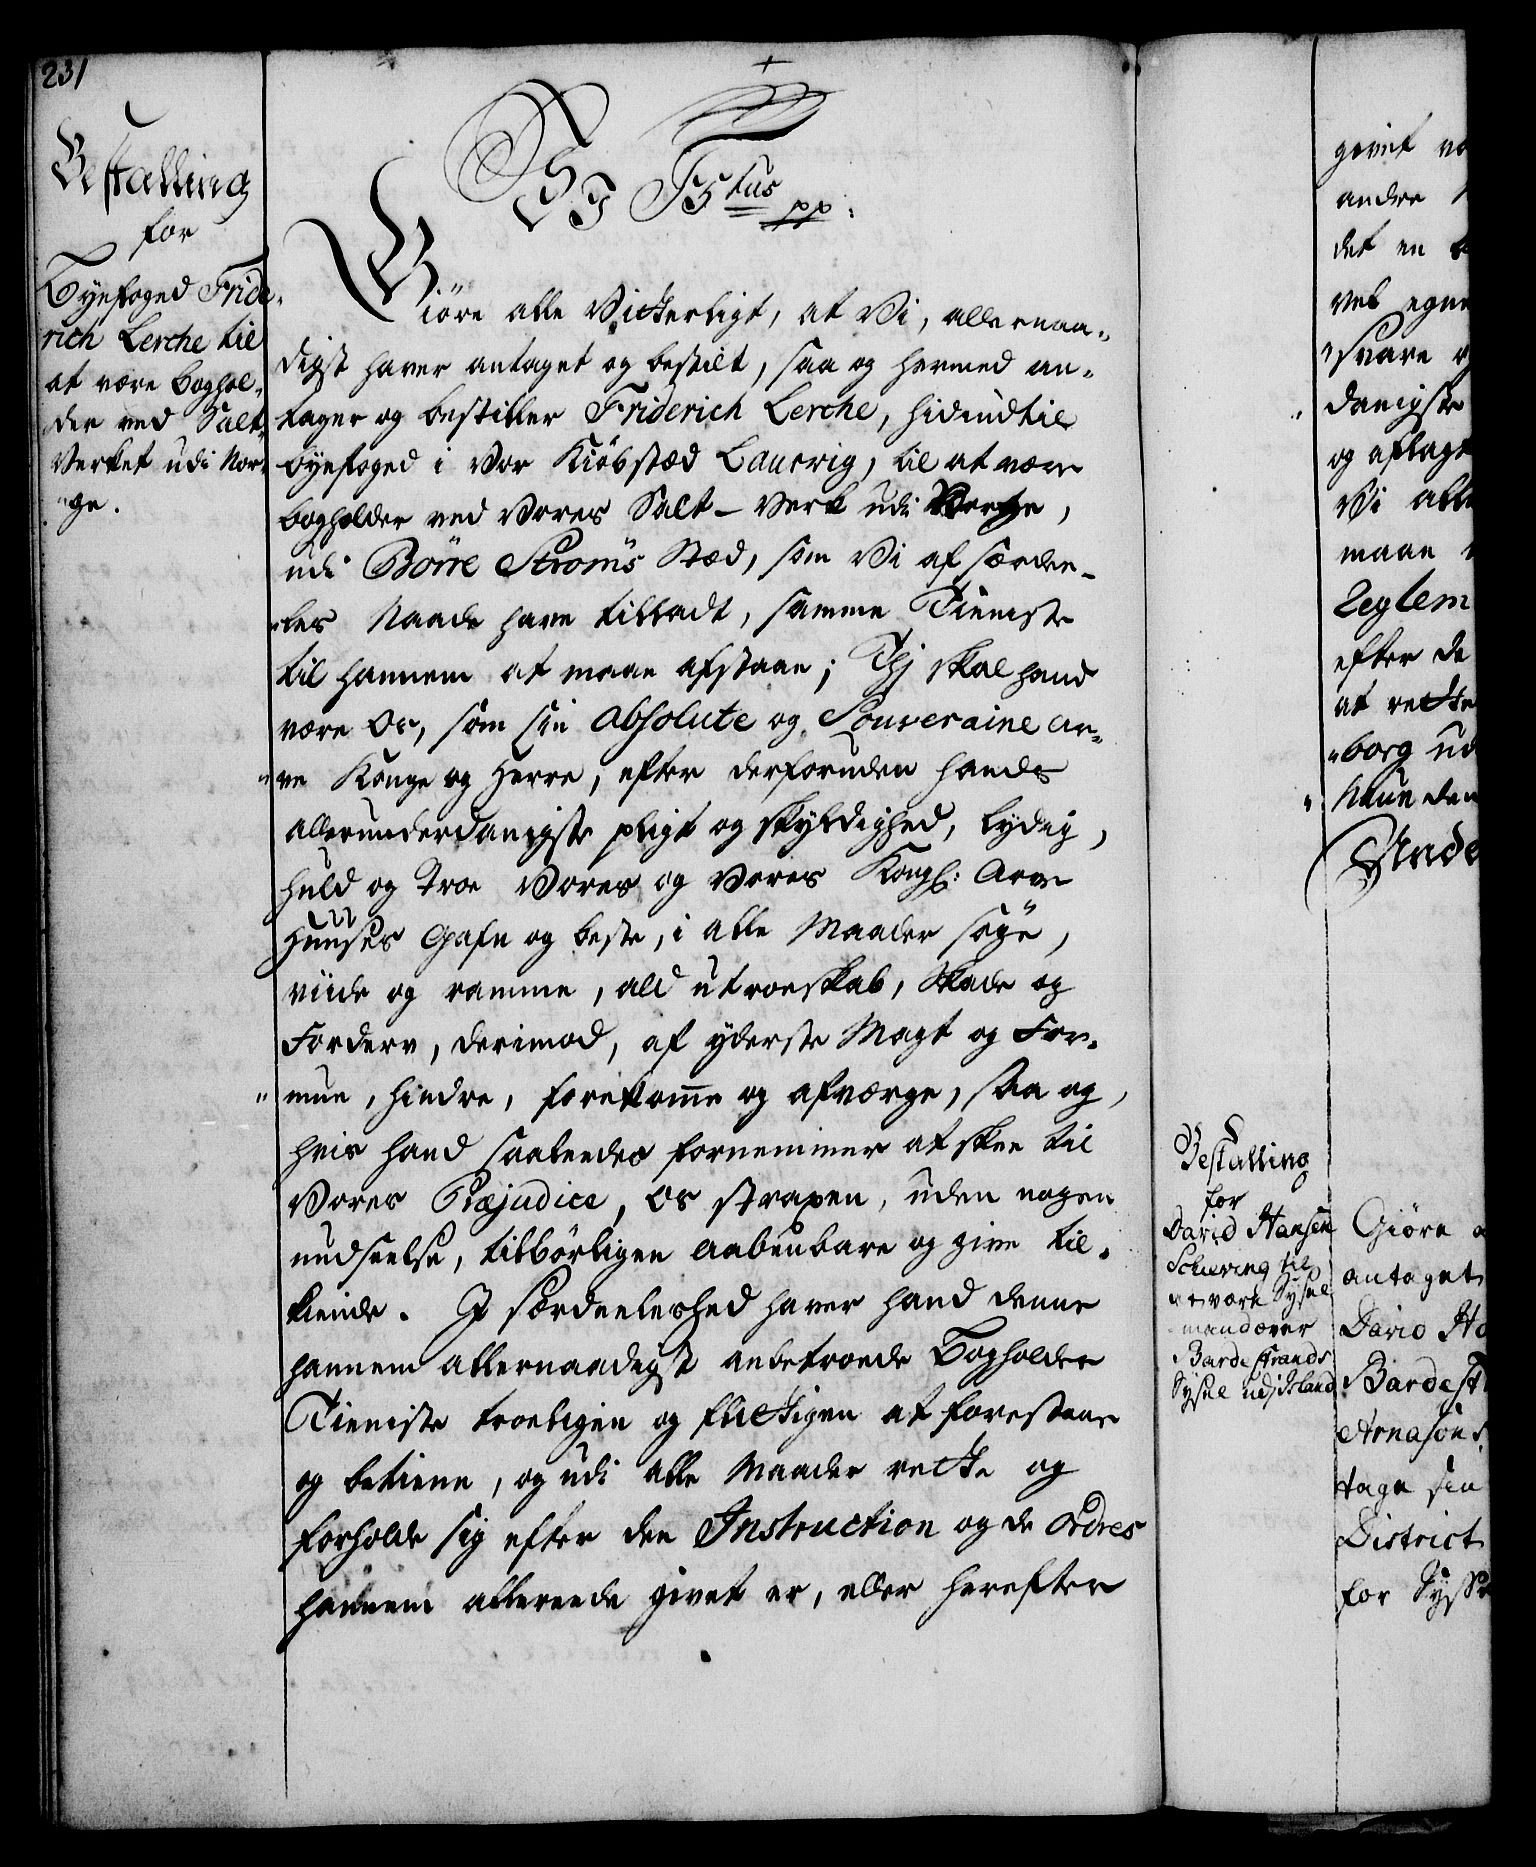 231
Bestalling
for
Byefoged Fride-
rich Lerche til
at være boghol-
der ved Salt-
Verket udi Nor-
ge.
VI F5tus pp:
Giöre alle Vitterligt, at Vi, allernaa-
digst haver antaget og bestilt, saa og hermed an-
tager og bestiller Friderich Lerche, hidindtil
byefoged i Vor Kiöbstæd Laurvig, til at være
bogholder ved Vores Salt-Verk udi Norge,
udi Börre Stroms Stæd, som Vi af særdee-
les Naade have tilladt, samme Tieniste
til hannem at maae afstaae; Thj skal hand
være Os, som sin Absolute og Souveraine Ar-
ve Konge og Herre, efter derforuden hands
allerunderdanigste pligt og skyldighed, lydig,
huld og Troe Vores og Vores Kongl: Arve
Huuses Gafn og beste, i alle Maader söge,
viide og ramme, ald utroeskab, Skade og
Forderv, derimod, af yderste Magt og For-
mue, hindre, forekomme og afværge, saa og,
hvis hand saaleedes fornemmer at skee til
Vores Præjudice, Os strapen, uden nogen
undseelse, tilbörligen aabenbare og give til-
kiende. I særdeeleshed haver hand denne
hannem allernaadigst anbetroede Bogholder
Tieniste troeligen og flittigen at forestaae
og betiene, og udi alle Maader rette og
forholde sig efter den Instruction og de Ordres
hannem allereede givet er, eller herefter
Bestalling
for
David Hansen
Scheving til
at være Sysel
mand over
Bardestrands
Sysel udj Island
givet
andre
det en
vel egne
svare
danigste
og aflagt
Vi alle
maae
Reglem
efter de
at rette
borg ud
Naaden
Unde
Giöre
antaget
David Ha
Bardest
Arnasön
tage sin
District
for Sysse